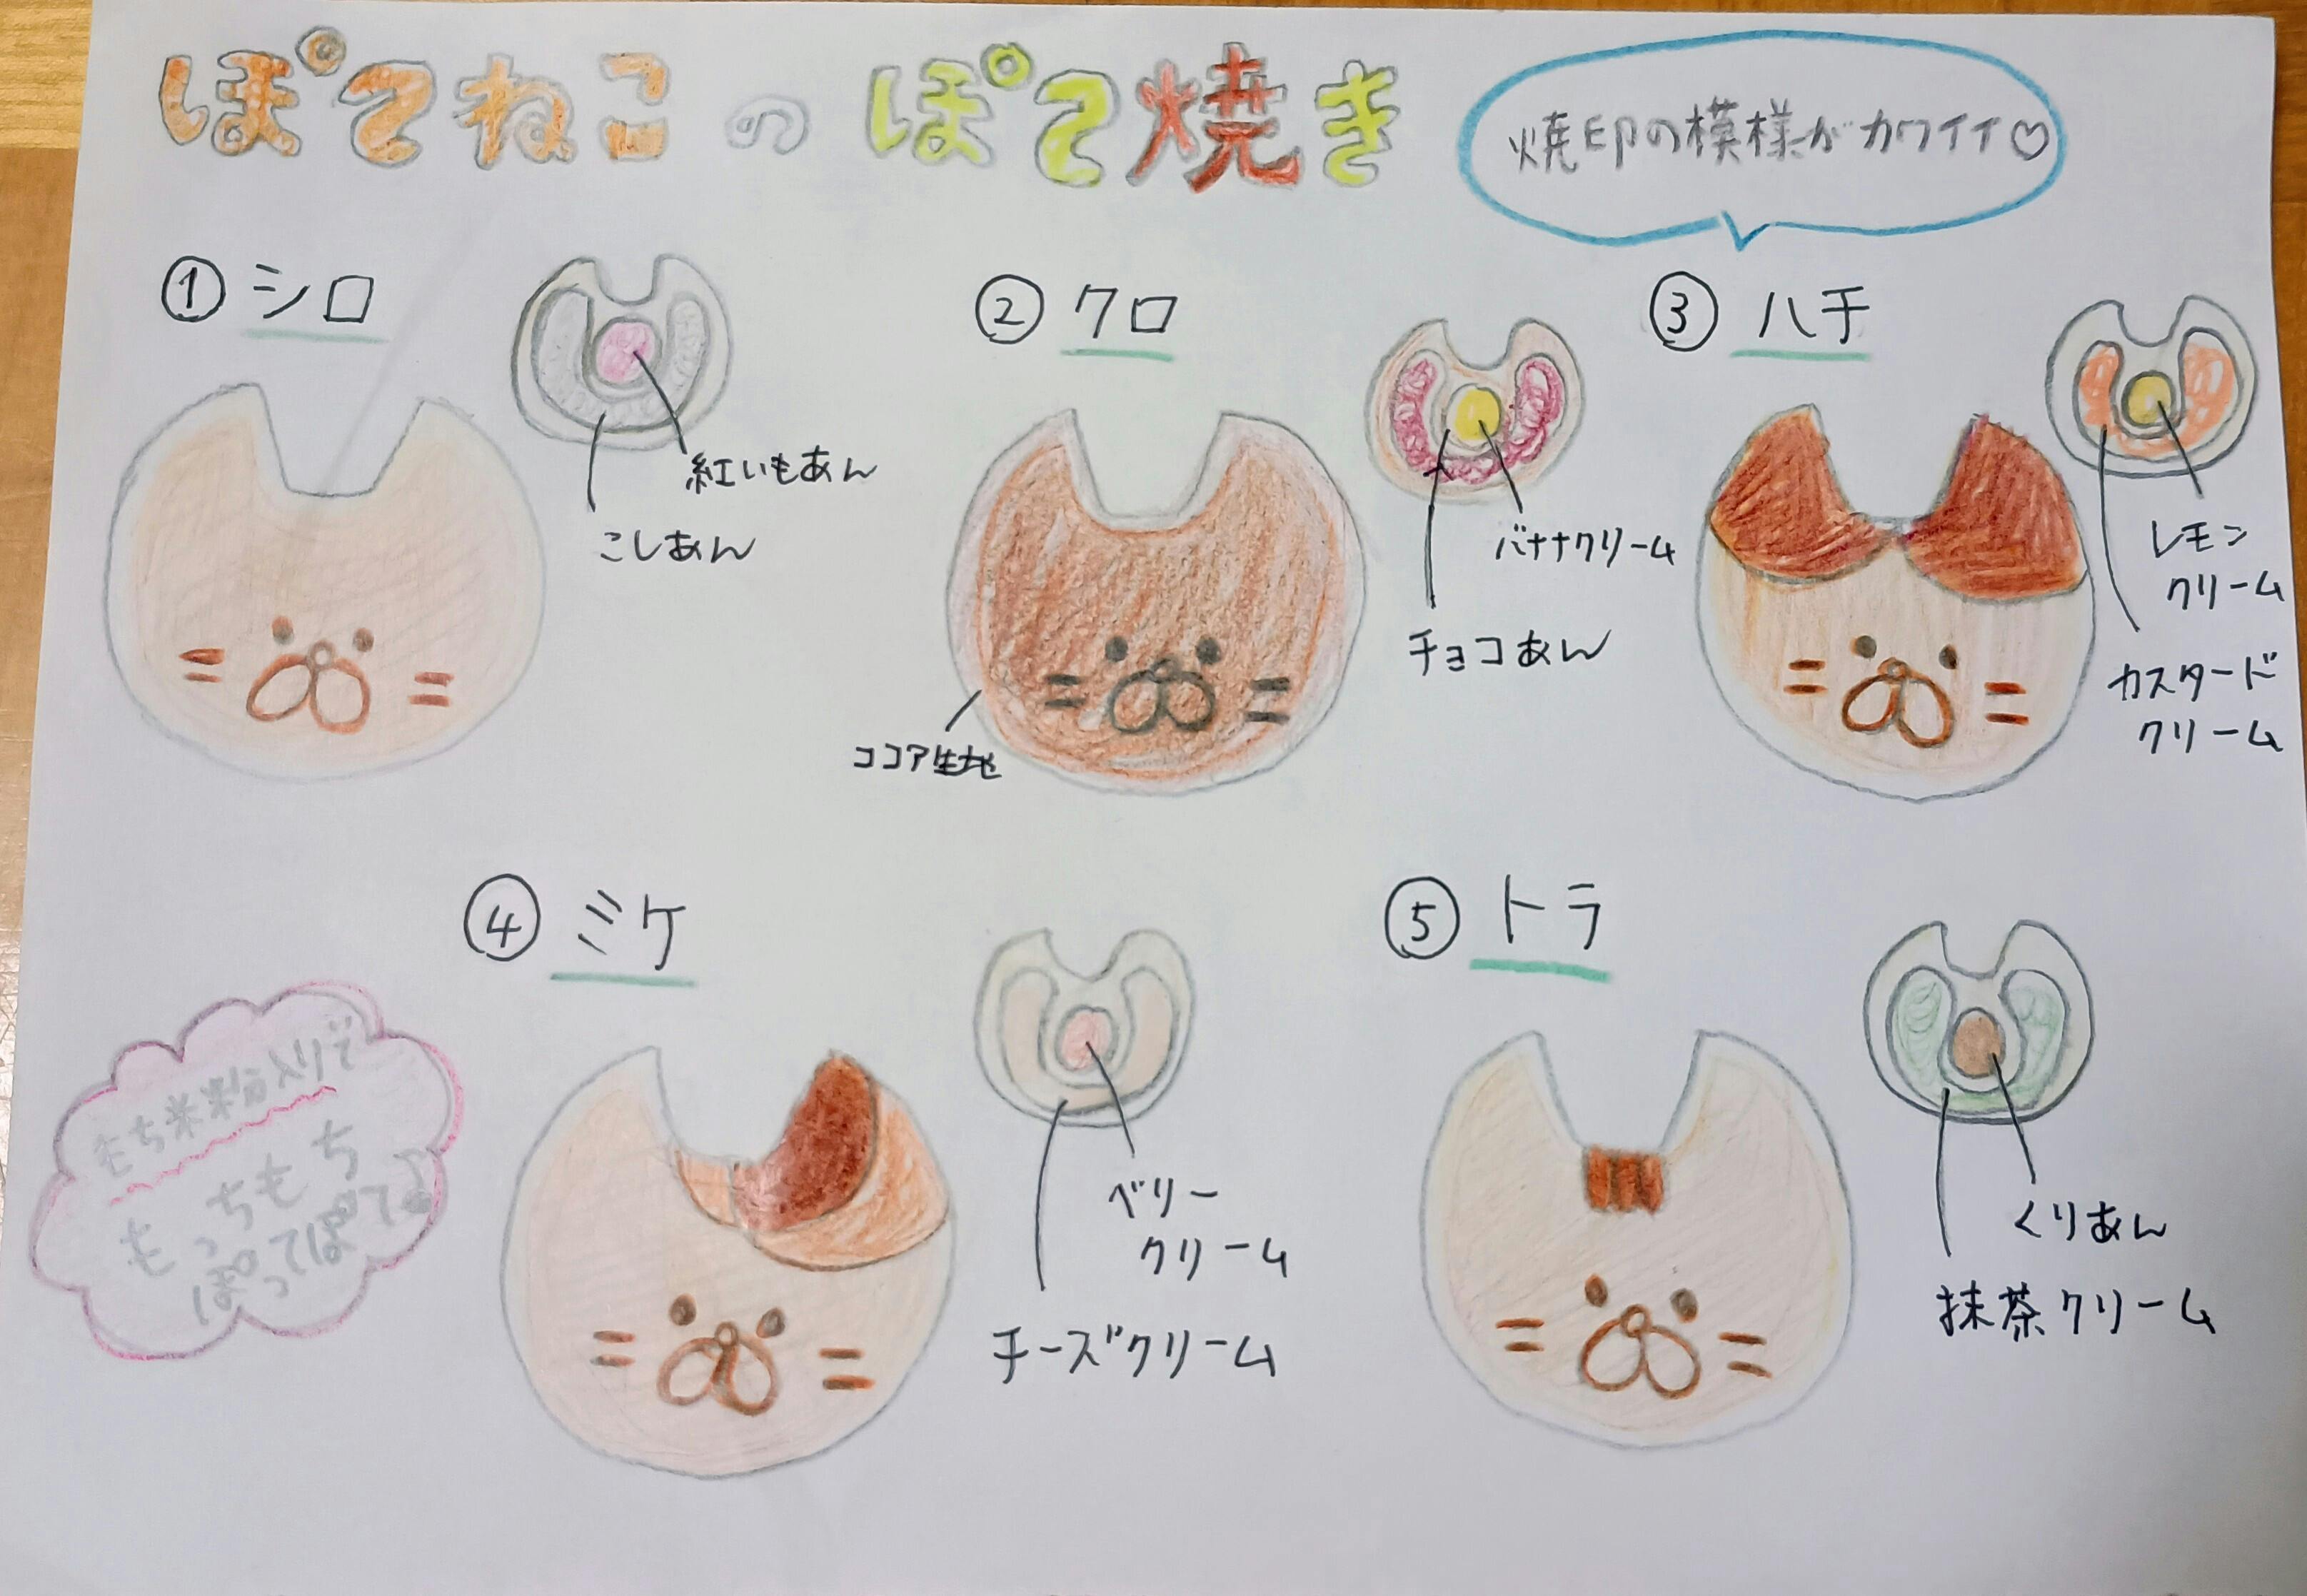 ぽてねこのぽて焼き
焼印の模様がカワイイ♡
①シロ
紅いもあん
こしあん
②クロ
バナナクリーム
チョコあん
ココア生地
③ハチ
レモン
クリーム
カスタード
クリーム
④ミケ
ベリー
クリーム
チーズクリーム
⑤トラ
くりあん
抹茶クリーム
もち米粉入りで
もっちもち
ぽってぽて♪